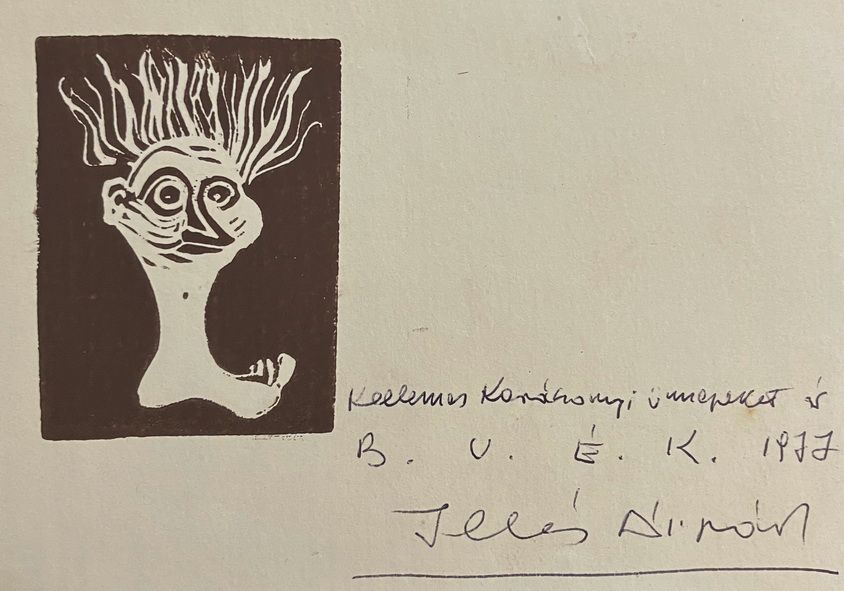 Kellemes Karácsonyi ünnepeket és
B. U. É. K. 1977
Illés Árpád